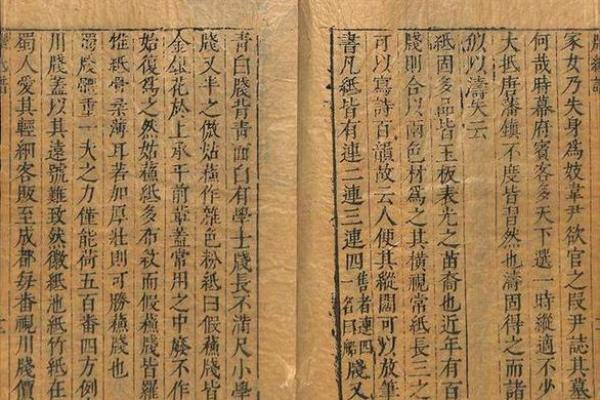 牋紙譜
家女乃失身為妓韋尹欲官之叚尹誌其墓
何哉時幕府賓客多天下選一時縱適不少
大抵唐藩鎮不度皆習然也濤固得之而諸
似以濤矣云
紙固多品皆玉板表光之苗裔也近年有百
牋則合以兩色材為之其橫視常紙長三之
可以寫詩百韻故云人便其縱闊可以放筆
書凡紙皆有連二連三連四售者連四一名曰船牋又
青白牋背青面白有學士牋長不滿尺小學
牋又半之倣姑蘓作雜色粉紙曰假蘓牋皆
金銀花於上承平前輩蓋常用之中廢不作
始復為之然姑蘓紙多布紋而假蘓牋皆羅
惟紙骨柔薄耳若加厚壯則可勝蘓牋也
蜀牋體重一夫之力僅能荷五百番四方例
川牋蓋以其遠號難致然徽紙池紙竹紙在
蜀人愛其輕細客販至成都每番視川牋價